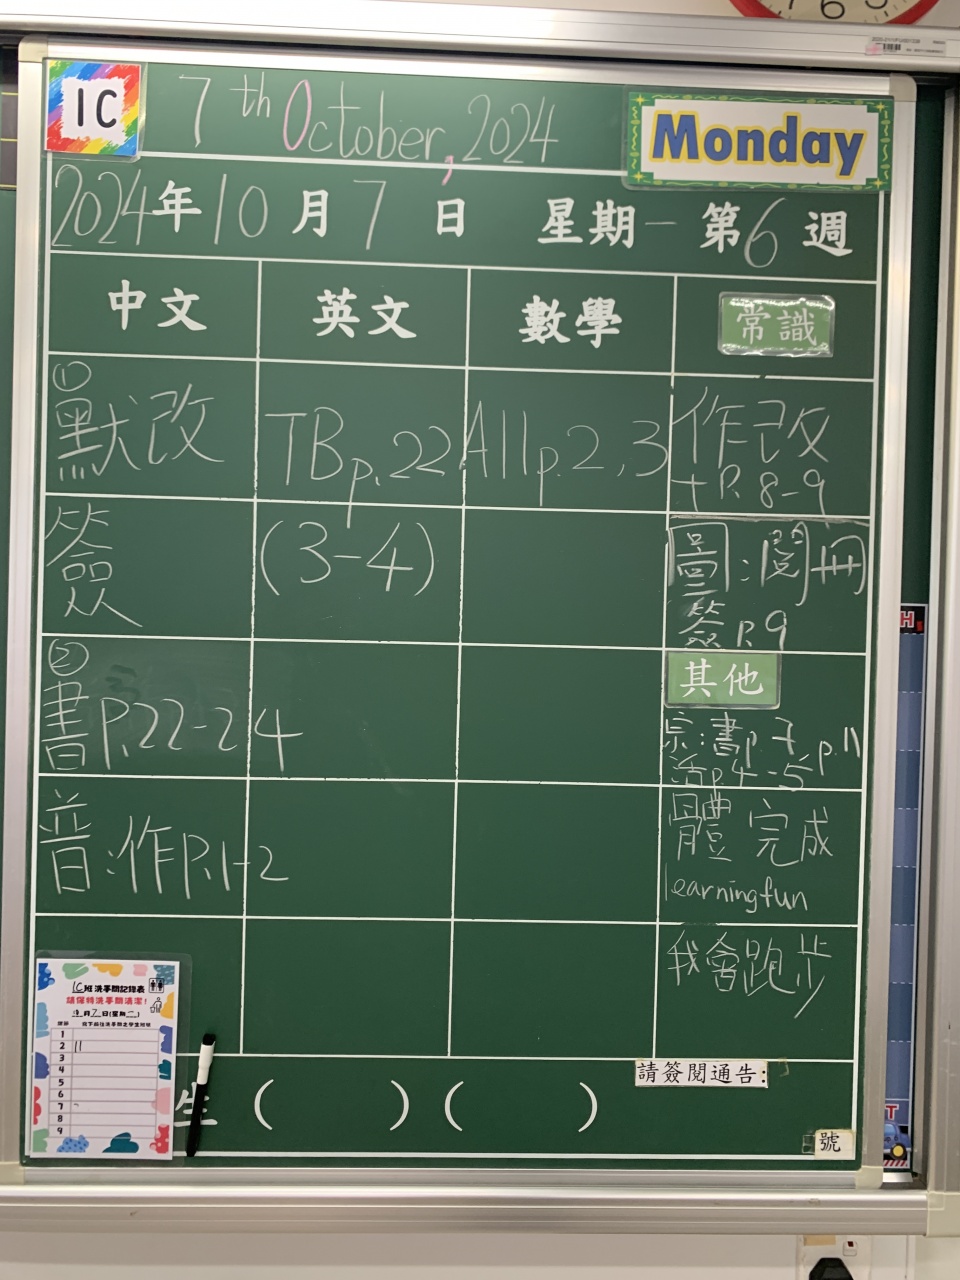 1C
7th October, 2024
Monday
2024年10月7日 星期一 第6週
中文 英文 數學 常識
①
默改 TB p.22 A11 p.2,3 作改
+P.8-9
簽 (3-4) 圖:閱冊
簽P.9
②
書P.22-24
其他
宗:書p.7,p.11
活p.4-5
普:作P.1-2
體 完成
learning fun
我會跑步
1C班洗手間記錄表
請保持洗手間清潔!
10月7日(星期二)
1
2 11
3
4
5
6
7
8
9
生 ( ) ( )
請簽閱通告:
號